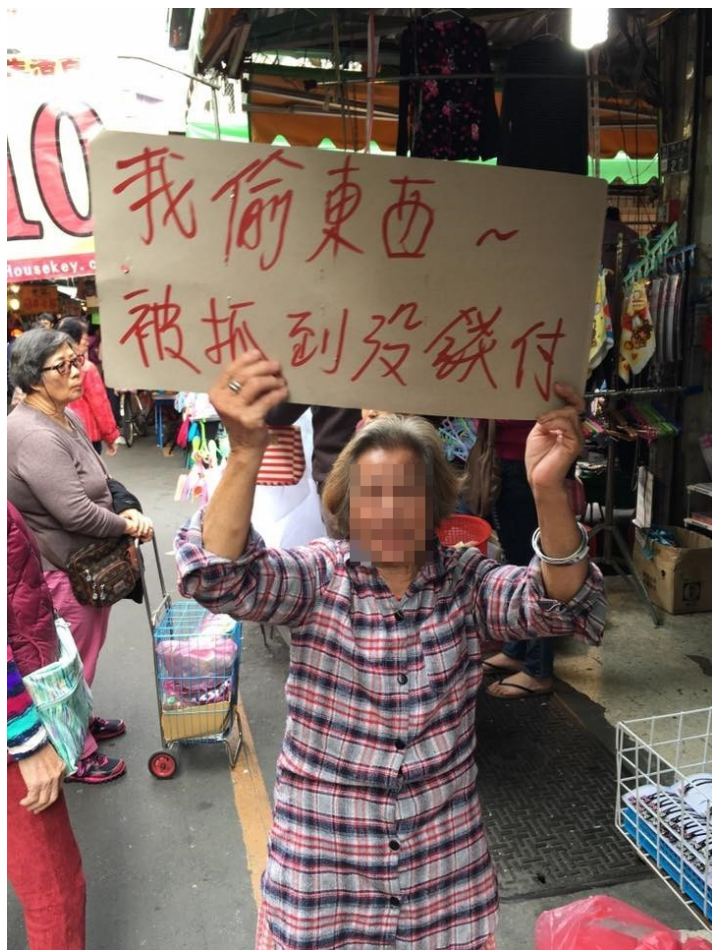 10
Housekey.c
我偷東西~
被抓到没錢付